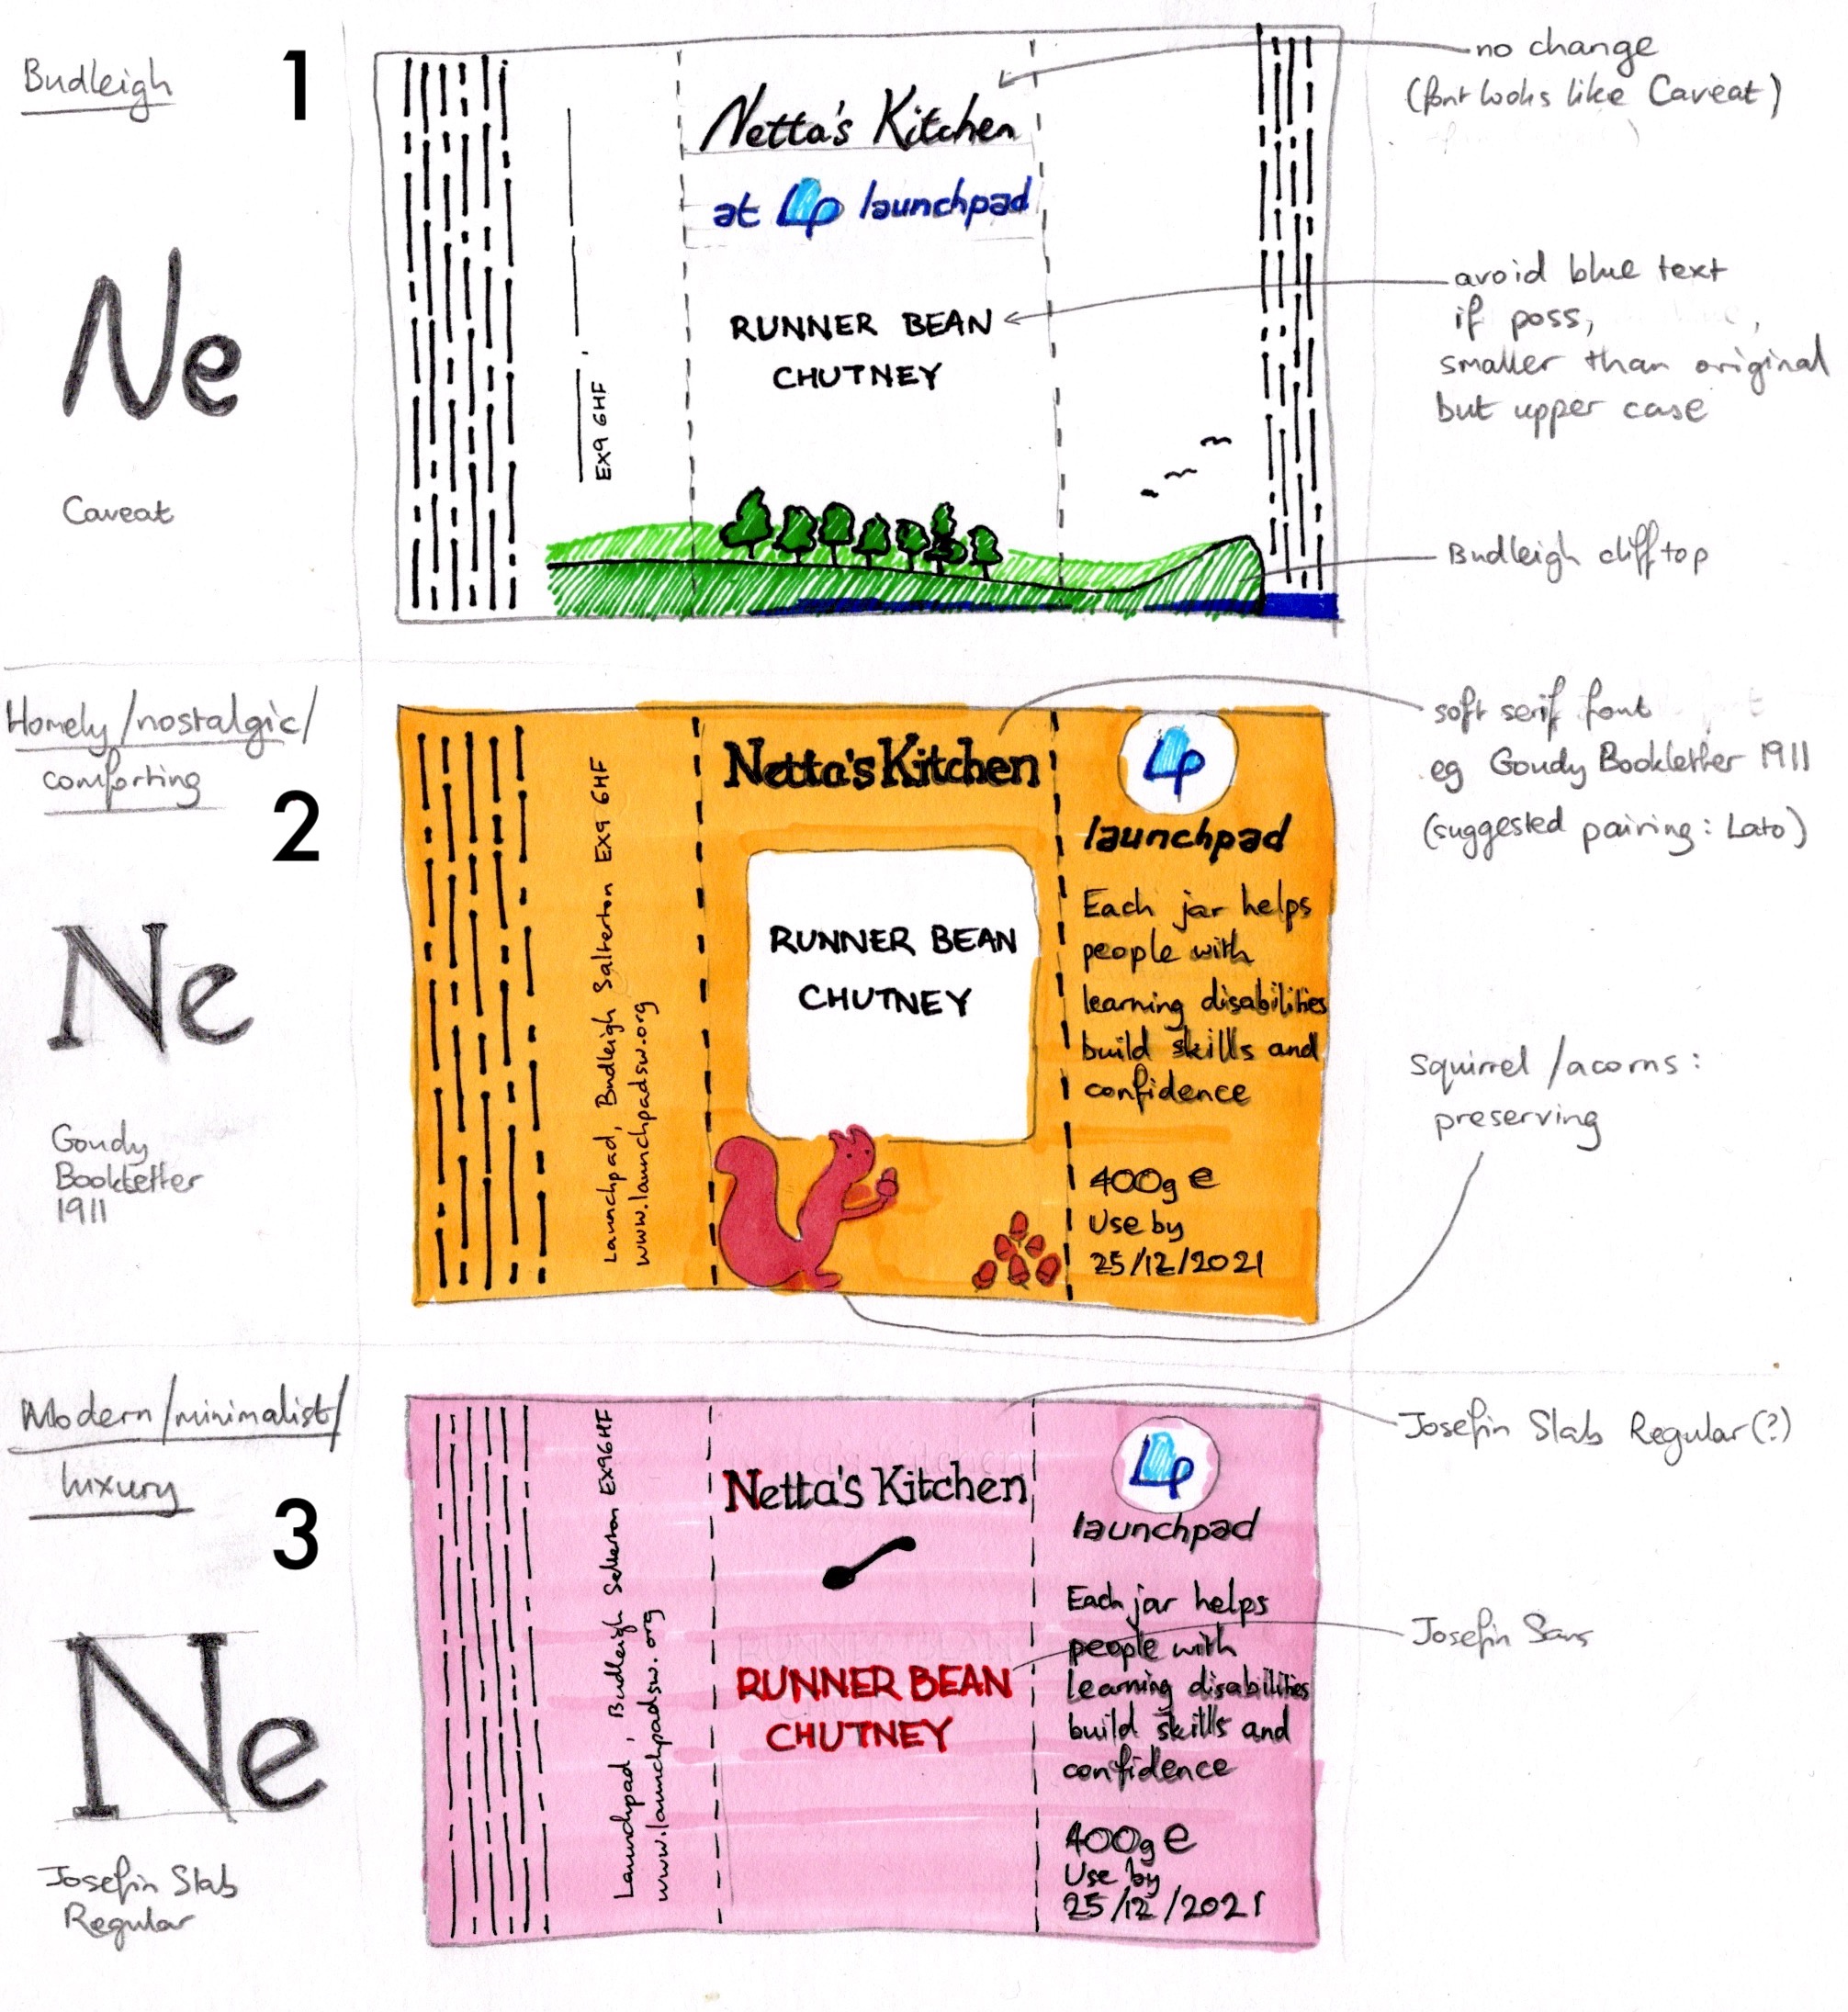 Budleigh
1
Ne
Caveat
EX9 6HF
Netta's Kitchen
at Lp launchpad
RUNNER BEAN
CHUTNEY
no change
(font looks like Caveat)
avoid blue text
if poss,
smaller than original
but upper case
Budleigh cliff top
Homely/nostalgic/
comforting
2
Ne
Goudy
Bookletter
1911
Launchpad, Budleigh Salterton EX9 6HF
www.launchpadsw.org
Netta's Kitchen
RUNNER BEAN
CHUTNEY
Lp
launchpad
Each jar helps
people with
learning disabilities
build skills and
confidence
400g e
Use by
25/12/2021
soft serif font
eg Goudy Bookletter 1911
(suggested pairing: Lato)
squirrel/acorns:
preserving
Modern/minimalist/
luxury
3
Ne
Josefin Slab
Regular
Launchpad, Budleigh Salterton EX9 6HF
www.launchpadsw.org
Netta's Kitchen
RUNNER BEAN
CHUTNEY
Lp
launchpad
Each jar helps
people with
learning disabilities
build skills and
confidence
400g e
Use by
25/12/2021
Josefin Slab Regular(?)
Josefin Sans